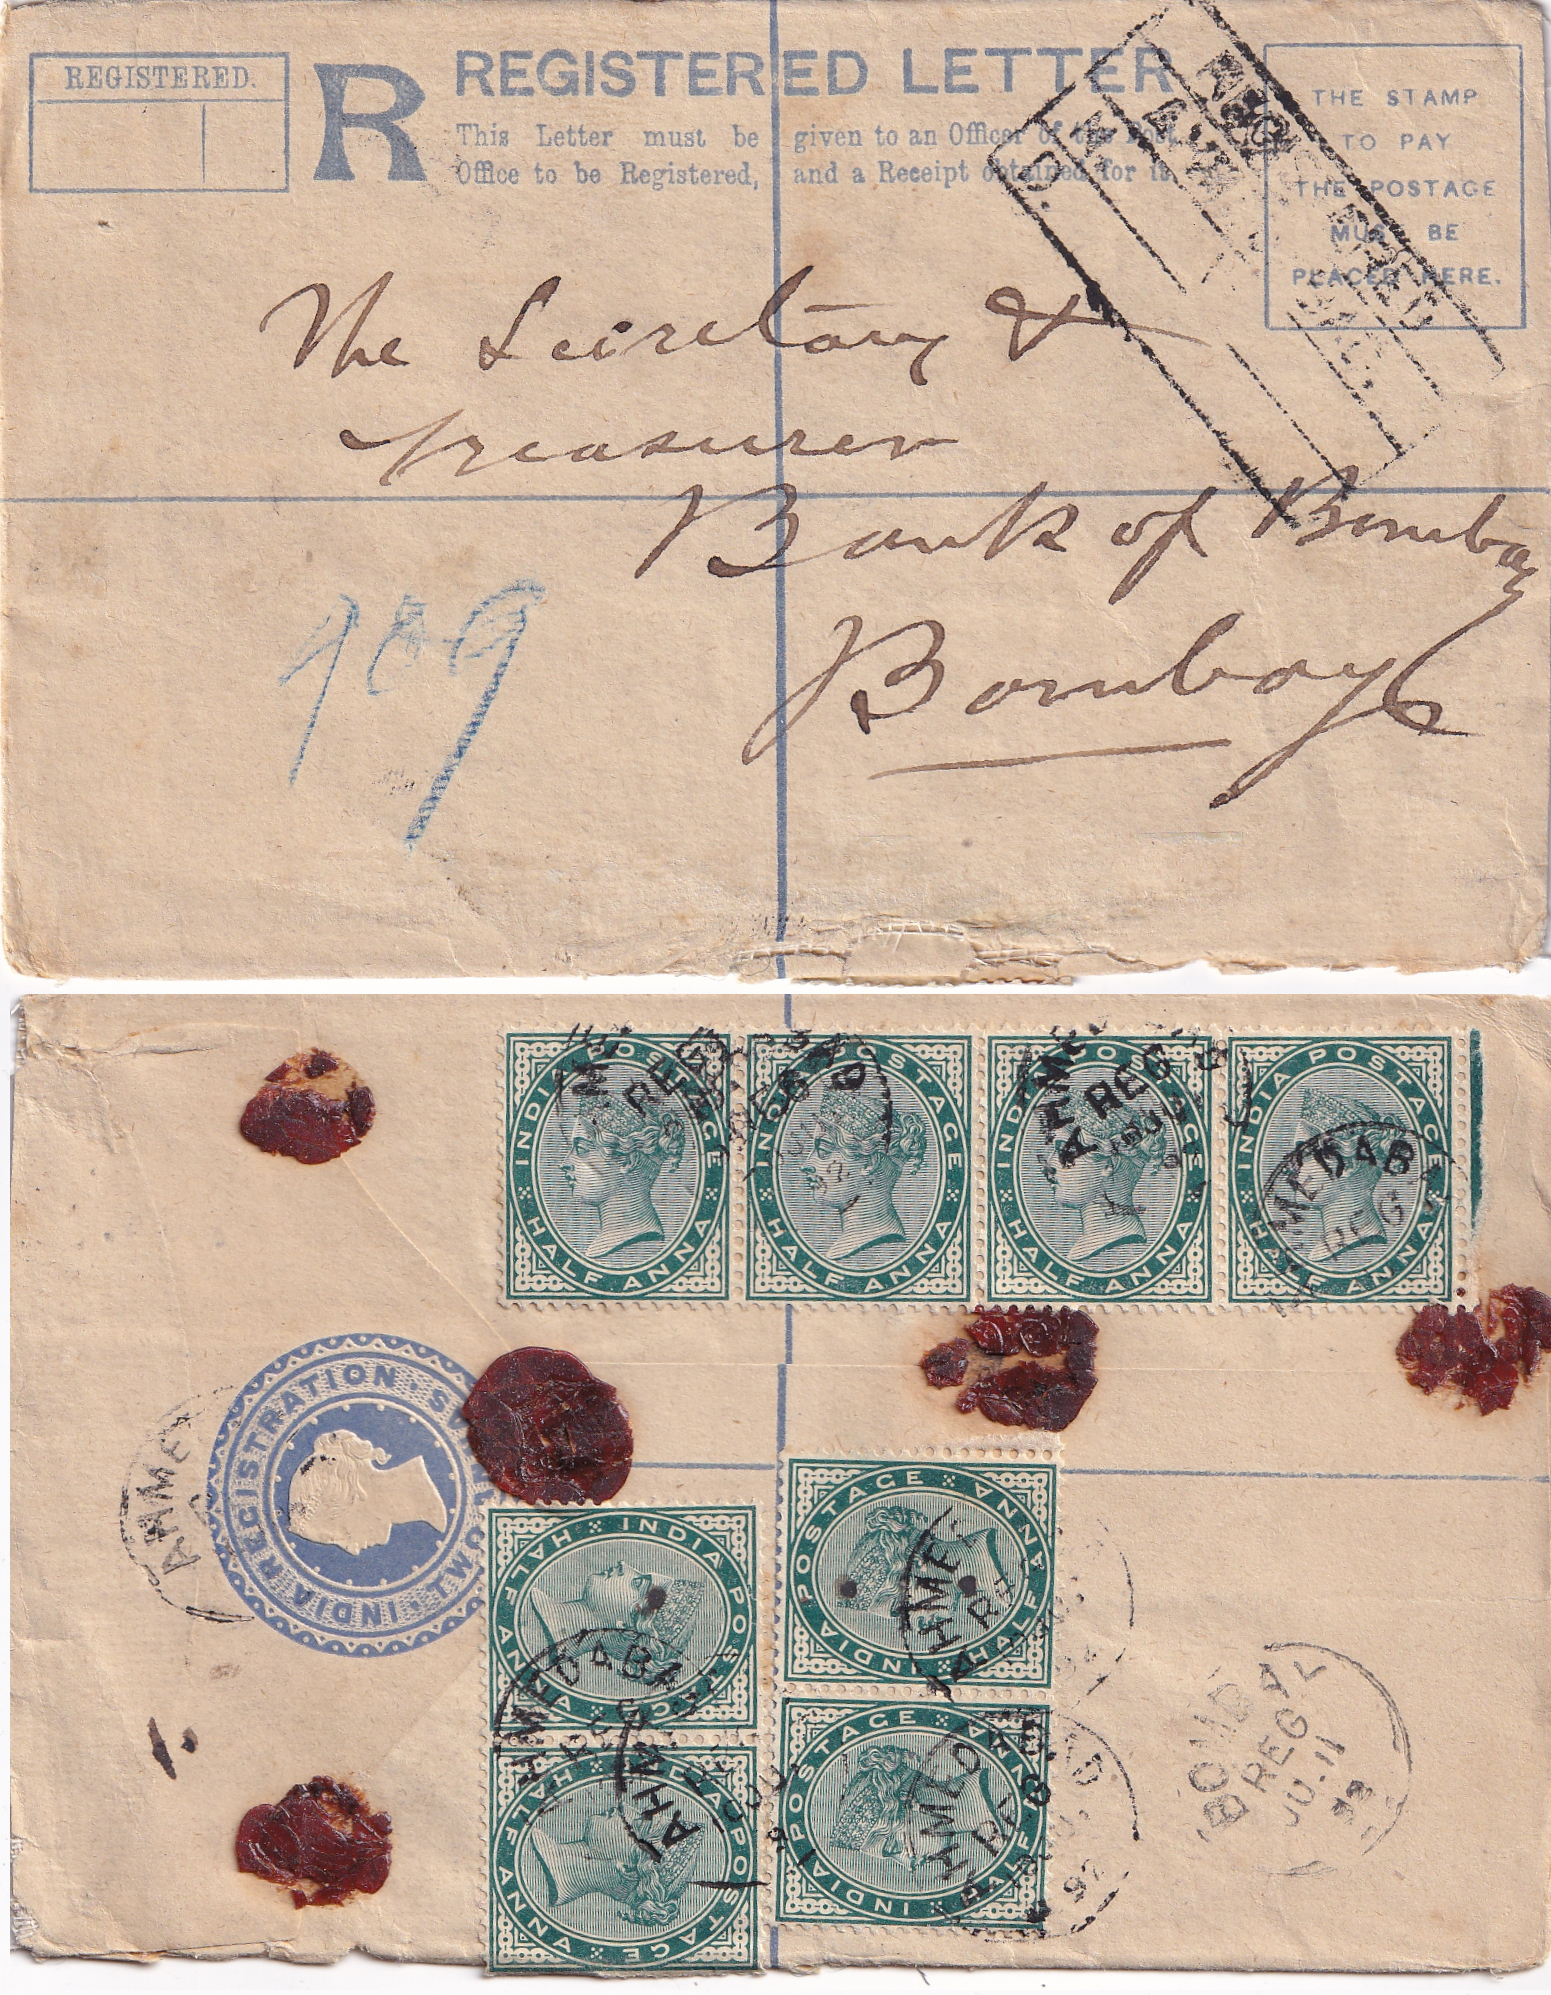 REGISTERED.
R
REGISTERED LETTER
This Letter must be given to an Officer of the Post
Office to be Registered, and a Receipt obtained for it.
THE STAMP
TO PAY
THE POSTAGE
MUST BE
PLACED HERE.
REGISTERED
The Secretary &
treasurer
Bank of Bombay
Bombay
109
INDIA POSTAGE
HALF ANNA
INDIA POSTAGE
HALF ANNA
INDIA POSTAGE
HALF ANNA
INDIA POSTAGE
HALF ANNA
REG
REG
REG
AHMEDAB
REG
INDIA REGISTRATION
TWO
AHME
INDIA POSTAGE
HALF ANNA
INDIA POSTAGE
HALF ANNA
INDIA POSTAGE
HALF ANNA
INDIA POSTAGE
HALF ANNA
AHMEDABA
REG
AHM
AHME
AHMEDABAD
REG
92
BOMBAY
REG
JU.11